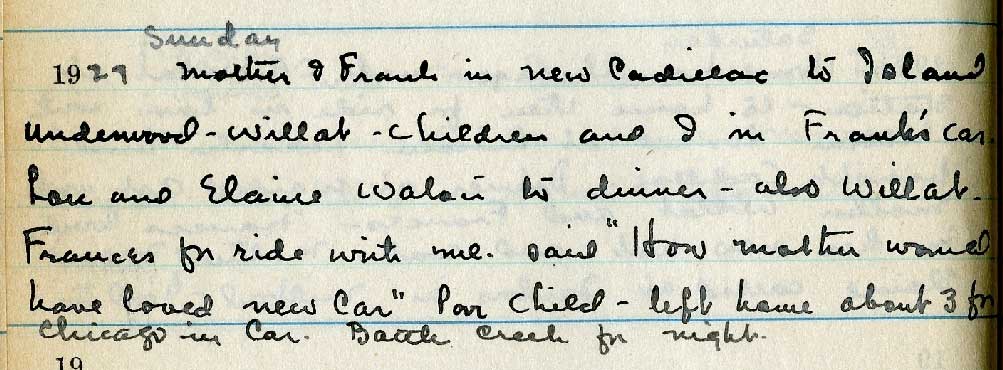 Sunday
1929 Mother & Frank in new Cadillac to Island
Underwood - Willat - children and I in Frank's car.
Lou and Elaine to dinner - also Willat.
Frances for ride with me. said "How mother would
have loved new car" Poor child - left home about 3 for
Chicago in car. Battle Creek for night.
19